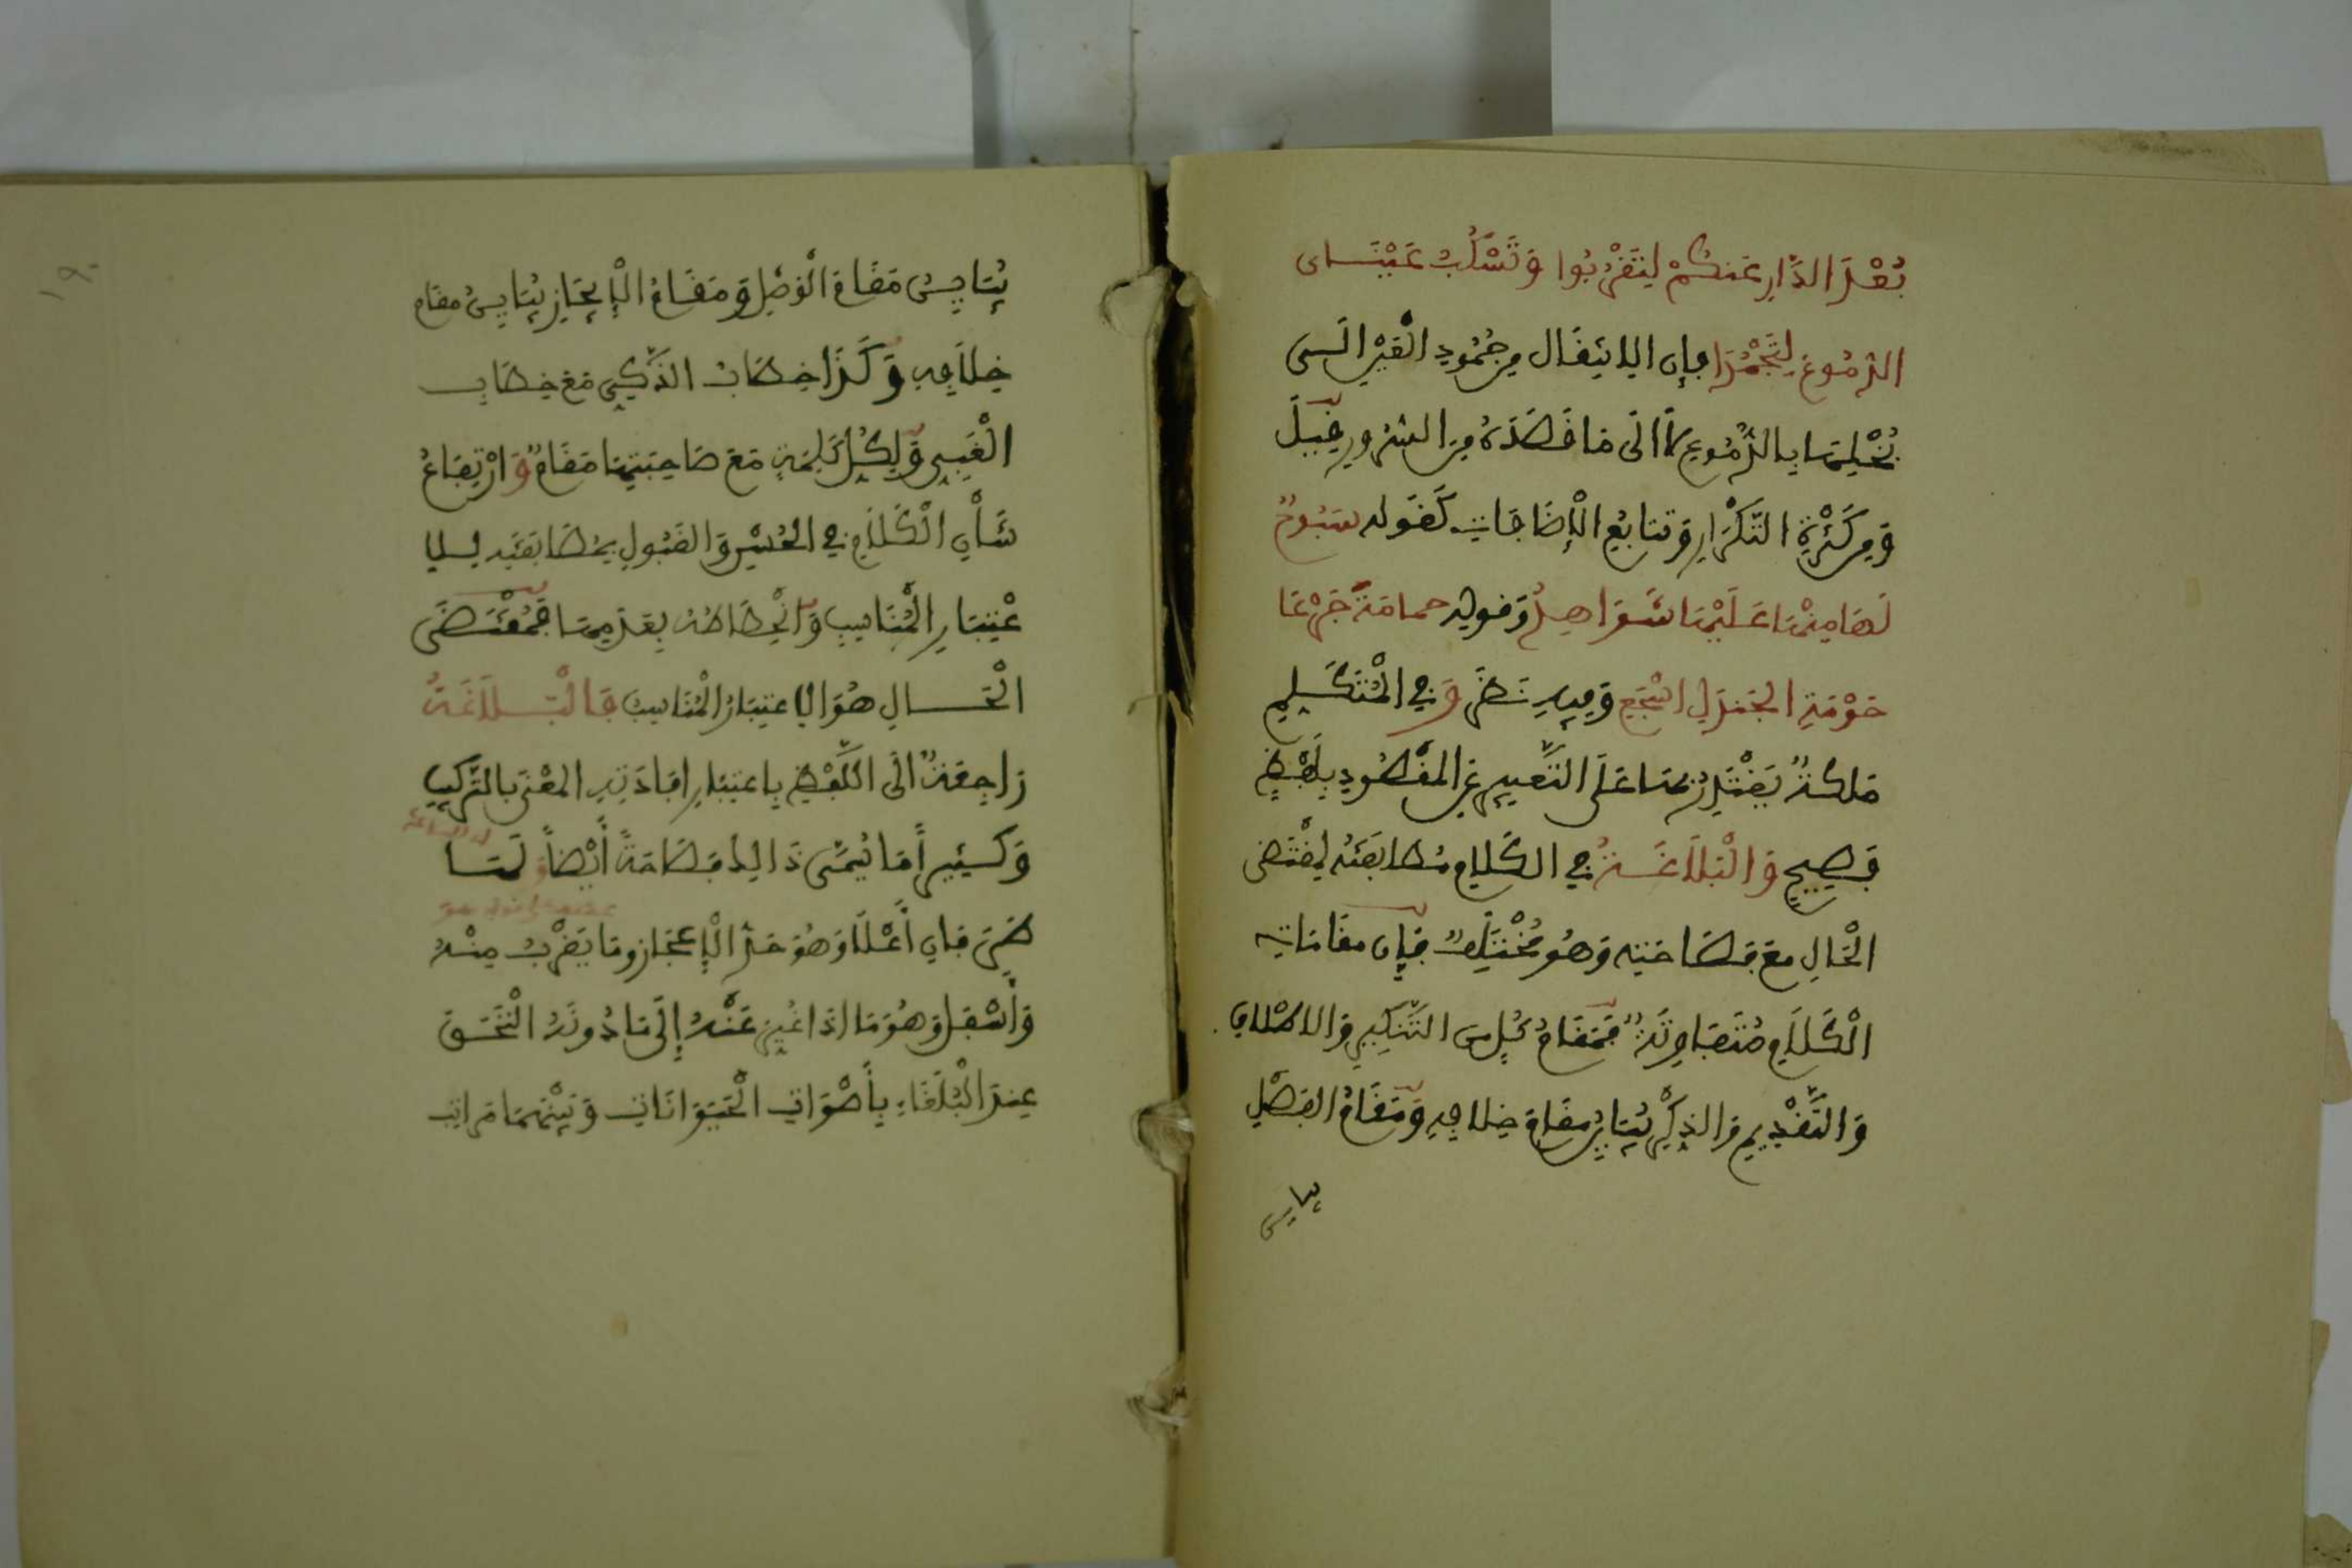 بُعْدَ الدَّارِ عَنكُمْ لِتَقْرُبُوا وَتَسْكُبُ عَيْنَاى
الدُّمُوعَ لِتَجْمُدَا فإن الانتقال من جُمُودِ الْعَيْنِ الى
بُخْلِهَا بالدُّمُوعِ لا الى مَا قَصَدَهُ مِنَ السُّرُورِ قِيلَ
وَمِن كَثْرَةِ التَّكْرَارِ وَتتابُعِ الْإِضَافَاتِ كَقَوله سَبُوحٌ
لَهَا مِنْهَا عَلَيْهَا شَوَاهِدُ وَقوله حمامَةَ جَرْعَا
حَوْمَةِ الجَندَلِ اسْجَعِي وَفِيهِ نَظَرٌ وَفي الْمُتَكَلِّمِ
مَلَكَةٌ يَقْتَدِرُ بهَا عَلَى التَّعبيرِ عَنِ المَقْصُودِ بِلَفْظٍ
فَصِيحٍ وَالْبَلَاغَةُ فِي الكَلامِ مُطَابَقَتُهُ لِمُقْتَضَى
الْحَالِ مع فَصَاحَتِه وَهُوَ مُخْتَلِفٌ فَإِن مقَامَات
الْكَلَامِ مُتَفَاوِتَةٌ فَمَقَامُ كُلٍّ مِنَ التَّنكِيرِ وَالاطْلَاقِ
وَالتَّقْدِيمِ وَالذِّكْرِ يُبَايِنُ مقَامَ خِلَافِهِ وَمَقَامُ الفَصْلِ
يباين
١٩
يُبَايِنُ مَقَامَ الْوَصْلِ وَمَقَامُ الْإِيجَازِ يُبَايِنُ مقَام
خِلَافِهِ وَكَذَا خِطَابُ الذَّكِيِّ مَعَ خِطَابِ
الْغَبِيِّ وَلِكُلِّ كَلِمَةٍ مَعَ صَاحِبَتِهَا مَقَامٌ وَارْتِفَاعُ
شَأْنِ الْكَلَامِ فِي الْحُسْنِ وَالقَبُولِ بِمُطَابَقَتِهِ لِلا
عْتِبَارِ الْمُنَاسِبِ وَانْحِطَاطُهُ بِعَدَمِهَا فَمُقْتَضَى
الْحَالِ هُوَ الاعتِبَارُ الْمُنَاسِبُ فَالْبَلَاغَةُ
رَاجِعَةٌ الَى اللَّفْظِ بِاعتِبَارِ افَادَتِهِ المَعْنَى بالتَّرْكِيبِ
وَكَثِيراً مَا يُسَمَّى ذَالِكَ فَصَاحَةً أَيْضاً وَلَهَا
طَرَفَانِ أَعْلَا وَهُوَ حَدُّ الْإِعْجَازِ وَمَا يَقْرُبُ مِنْهُ
وَأَسْفَلُ وَهُوَ مَا اذَا غُيِّرَ عَنْهُ إِلَى مَا دُونَهُ الْتَحَقَ
عِندَ الْبُلَغَاءِ بِأَصْوَاتِ الْحَيَوَانَاتِ وَبَيْنَهُمَا مَرَاتِبُ